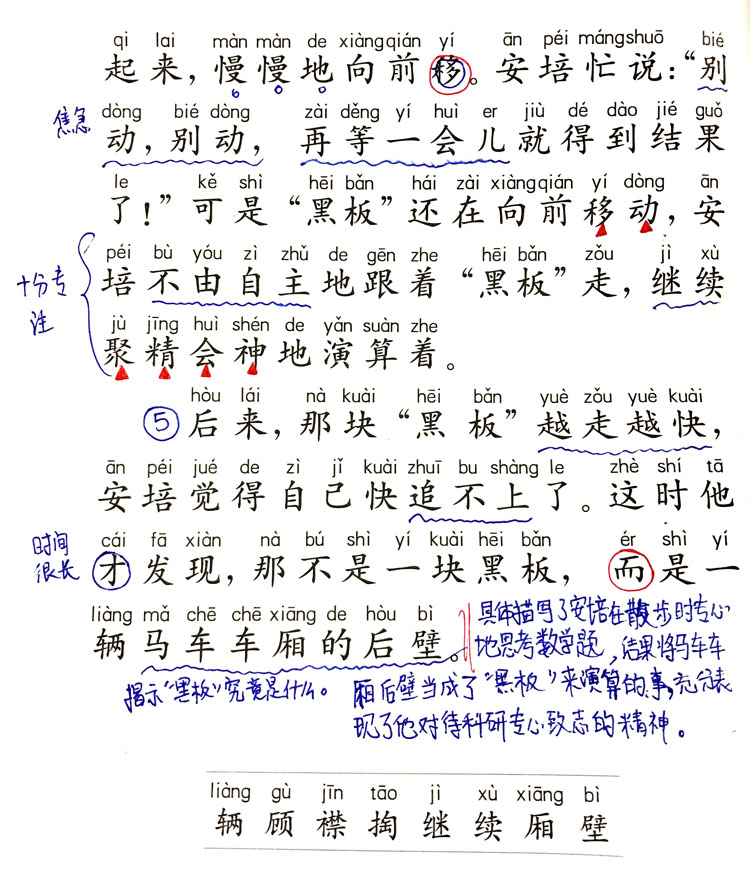 qi lai màn màn de xiàngqián yí ān péi mángshuō bié
起来，慢慢地向前移。安培忙说：“别
焦急
dòng bié dòng zài děng yí huì er jiù dé dào jié guǒ
动，别动，再等一会儿就得到结果
le kě shì hēi bǎn hái zài xiàngqián yí dòng ān
了！”可是“黑板”还在向前移动，安
十分专注
péi bù yóu zì zhǔ de gēn zhe hēi bǎn zǒu jì xù
培不由自主地跟着“黑板”走，继续
jù jīng huì shén de yǎn suàn zhe
聚精会神地演算着。
hòu lái nà kuài hēi bǎn yuè zǒu yuè kuài
⑤后来，那块“黑板”越走越快，
ān péi jué de zì jǐ kuài zhuī bu shàng le zhè shí tā
安培觉得自己快追不上了。这时他
时间很长
cái fā xiàn nà bú shì yí kuài hēi bǎn ér shì yí
才发现，那不是一块黑板，而是一
liàng mǎ chē chē xiāng de hòu bì
辆马车车厢的后壁。
揭示“黑板”究竟是什么。
具体描写了安培在散步时专心
地思考数学题，结果将马车车
厢后壁当成了“黑板”来演算的事，充分表
现了他对待科研专心致志的精神。
liàng gù jīn tāo jì xù xiāng bì
辆 顾 襟 掏 继 续 厢 壁